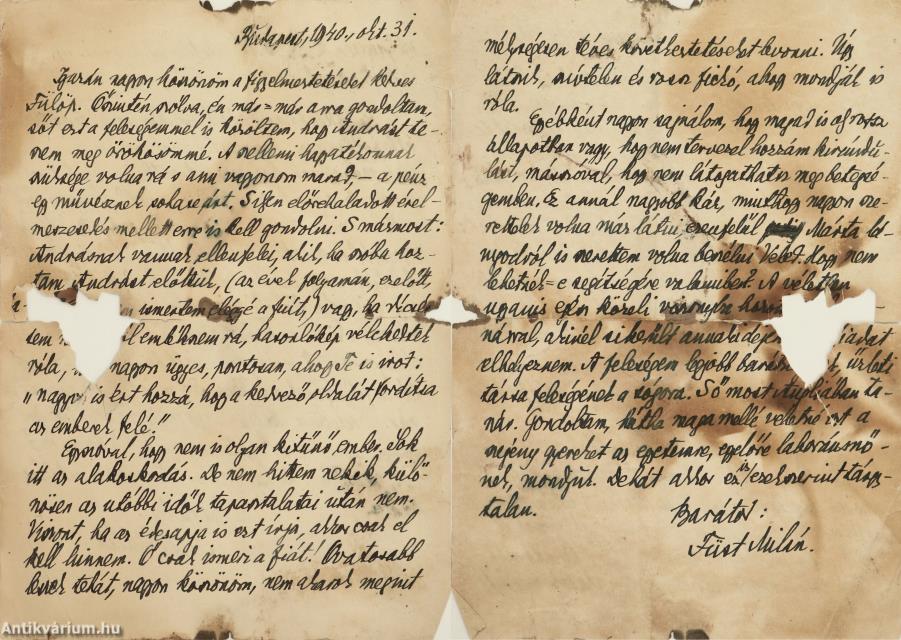 Budapest, 1940., okt. 31.
Igazán nagyon köszönöm a figyelmeztetésedet kedves
Fülöp. Őszintén szólva, én már-már arra gondoltam,
sőt ezt a feleségemmel is közöltem, hogy Andrást te-
szem meg örökösömmé. A szellemi hagyatékomnak
szüksége volna rá s ami vagyonom marad, – a pénz
egy művésznek sohase árt. S ilyen előrehaladott érel-
meszesedés mellett erre is kell gondolni. S mármost:
Andrásnak vannak ellenfelei, akik, ha szóba hoz-
tam Andrást előttük, (az évek folyamán, ezelőtt,
ismertem eléggé a fiút,) vagy, ha
sem embernem rá, hasonlókép vélekedtek
róla, nagyon ügyes, pontosan, ahogy Te is irod:
"nagyon is ért hozzá, hogy a kedvező oldalát fordítsa
az emberek felé."
Egyszóval, hogy nem is olyan kitűnő ember. Sok
itt az alakoskodás. De nem hittem nekik, külö-
nösen az utóbbi idők tapasztalatai után nem.
Viszont, ha az édesapja is ezt irja, akkor csak el
kell hinnem. Ő csak ismeri a fiát! Óvatosabb
leszek tehát, nagyon köszönöm, nem akarok megint
mélységesen téves következtetéseket levonni. Úgy
látszik, szívtelen és rossz fickó, ahogy mondják is
róla.
Egyébként nagyon sajnálom, hogy magad is oly rossz
állapotban vagy, hogy nem tervezel hozzám kirándu-
lást, másszóval, hogy nem látogathatsz meg betegsé-
gemben. Ez annál nagyobb kár, minthogy nagyon sze-
rettelek volna már látni ezenfelül Márta lá-
nyodról is szerettem volna beszélni Veled. Hogy nem
lehetnék-e segítségére valamiben? A véletlen
ugyanis egész közeli viszonyba hozott
nárral, akinél sikerült annakidején
elhelyeznem. A feleségem legjobb barátn üzleti
társa feleségének a sógora. S ő most Angliában ta-
nár. Gondoltam, hátha maga mellé vehetné ezt a
szegény gyereket az egyetemre, egyelőre laboránsnő-
nek, mondjuk. Dehát akkor ez is ezekszerint tárgy-
talan.
Barátod:
Füst Milán.
Antikvárium.hu